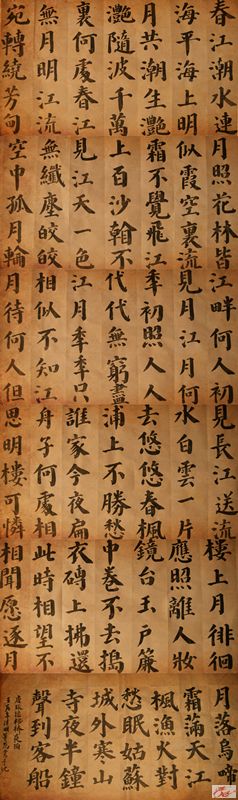 春江潮水連
海平海上明
月共潮生灩
灩隨波千萬
裏何處春江
無月明江流
宛轉繞芳甸
月照花林皆
似霞空裏流
霜不覺飛江
上白沙看不
見江天一色
無纖塵皎皎
空中孤月輪
江畔何人初
見月江月何
年初照人人
代代無窮盡
江月年年只
相似不知江
月待何人但
見長江送流
水白雲一片
去悠悠春楓
浦上不勝愁
誰家今夜扁
舟子何處相
思明樓可憐
樓上月徘徊
應照離人妝
鏡台玉戶簾
中卷不去搗
衣砧上拂還
此時相望不
相聞愿逐月
月落烏啼
霜滿天江
楓漁火對
愁眠姑蘇
城外寒山
寺夜半鐘
聲到客船